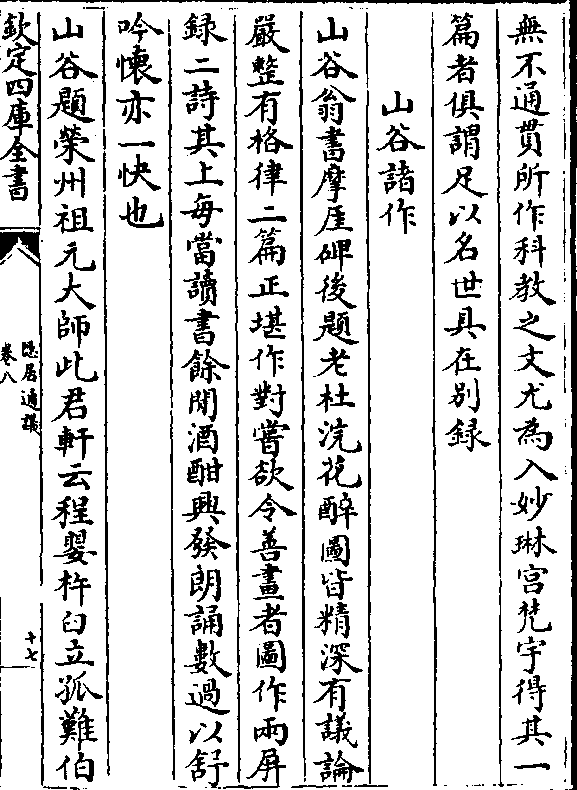 無不通貫所作科教之文尤為入妙琳宫梵宇得其一
篇者俱謂足以名世具在别録
山谷諸作
山谷翁書摩厓碑後題老杜浣花醉圖皆精深有議論
嚴整有格律二篇正堪作對嘗欲令善畫者圖作兩屏
録二詩其上每當讀書餘閒酒酣興發朗誦數過以舒
吟懐亦一快也
山谷題榮州祖元大師此君軒云程嬰杵臼立孤難伯
欽定四庫全書
隠居通議
卷八
十七